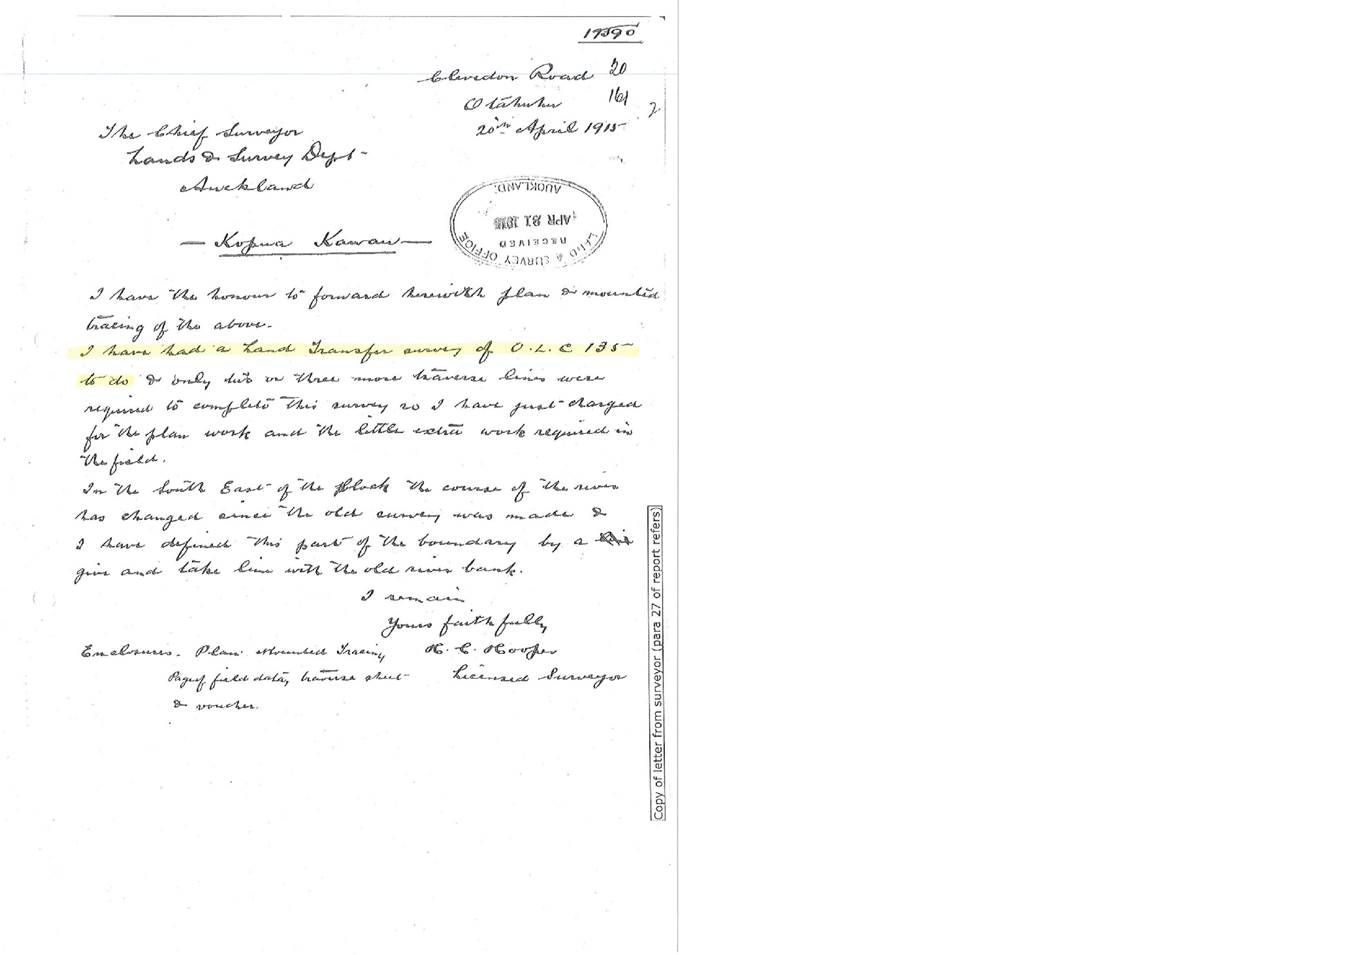 17590
Clevedon Road
20
Otahuhu
161
2
20th April 1915
The Chief Surveyor
Lands & Survey Dept
Auckland
LAND & SURVEY OFFICE
RECEIVED
APR 21 1915
AUCKLAND.
— Kopua Kawau —
I have the honour to forward herewith plan & mounted
tracing of the above.
I have had a Land Transfer survey of O.L.C 135
to do & only two or three more traverse lines were
required to complete this survey so I have just charged
for the plan work and the little extra work required in
the field.
In the South East of the Block the course of the river
has changed since the old survey was made &
I have defined this part of the boundary by a
give and take line with the old river bank.
I remain
Yours faithfully
Enclosures. Plan. Mounted Tracing
H. C. Hooper
Page of field data, traverse sheet
Licensed Surveyor
& voucher.
Copy of letter from surveyor (para 27 of report refers)